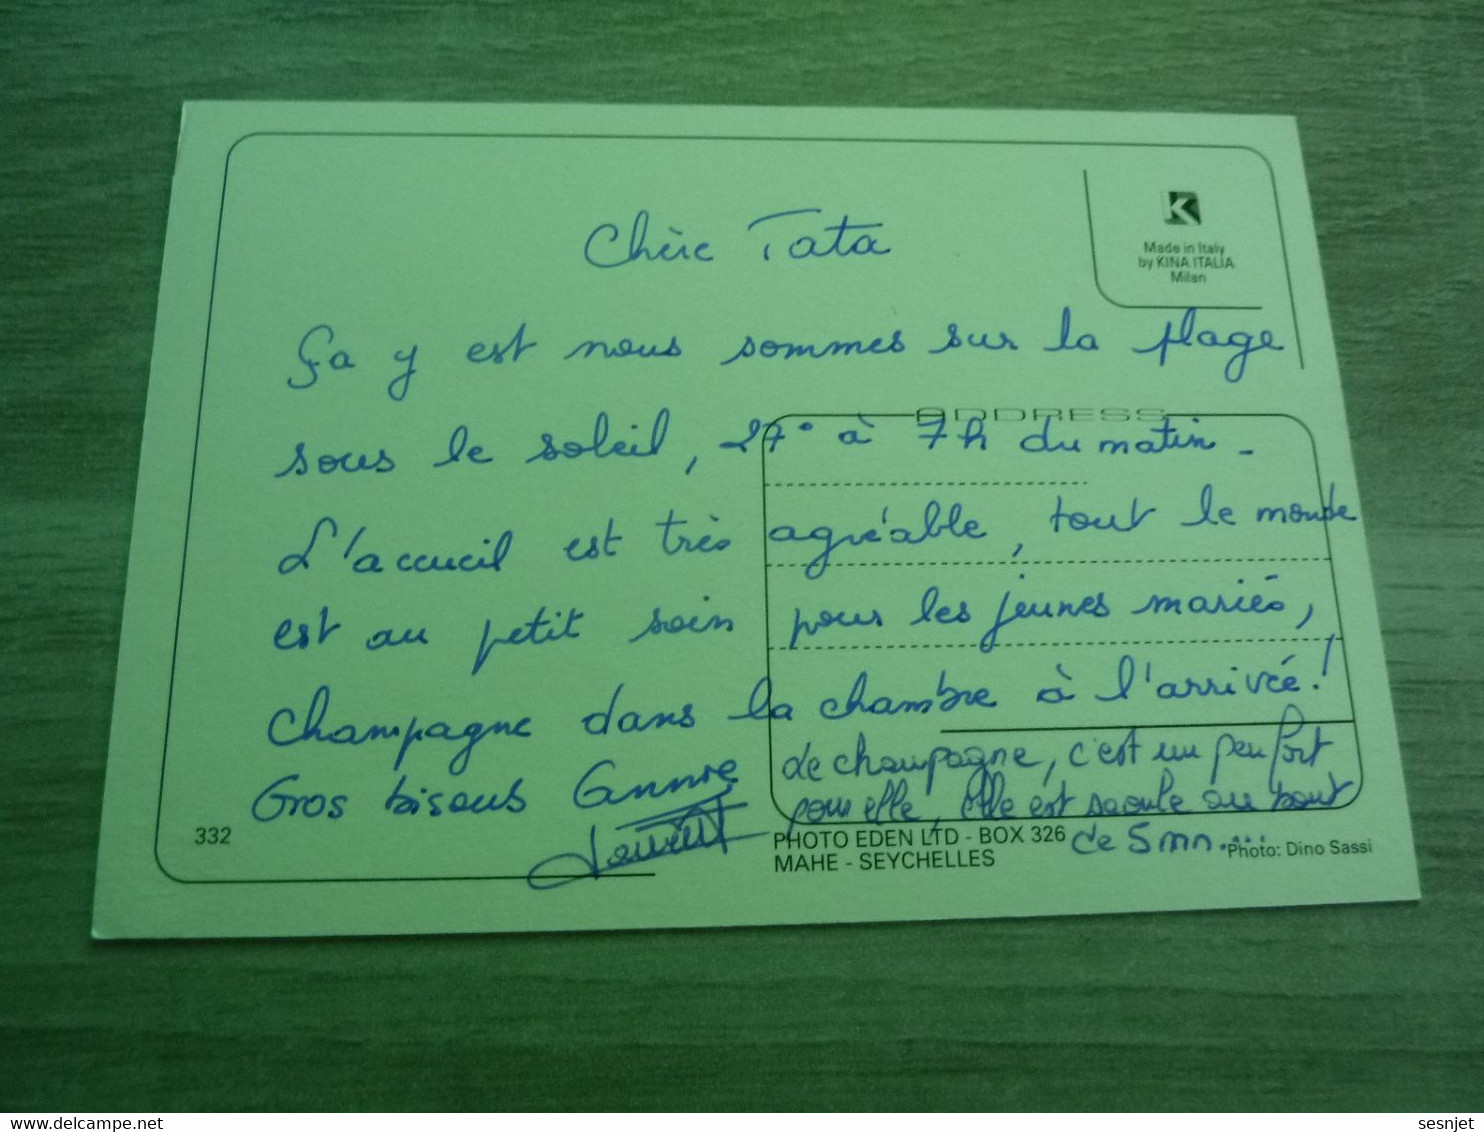 Chère Tata
K
Made in Italy
by KINA ITALIA
Milan
Ça y est nous sommes sur la plage
ADDRESS
sous le soleil, 27° à 7h du matin.
L'accueil est très agréable, tout le monde
est au petit soin pour les jeunes mariés,
champagne dans la chambre à l'arrivée!
Gros bisous
Laurent
Le champagne, c'est un peu fort
pour elle, elle est saoule au bout
de 5 mn....
332
PHOTO EDEN LTD - BOX 326
MAHE - SEYCHELLES
Photo: Dino Sassi
sesnjet